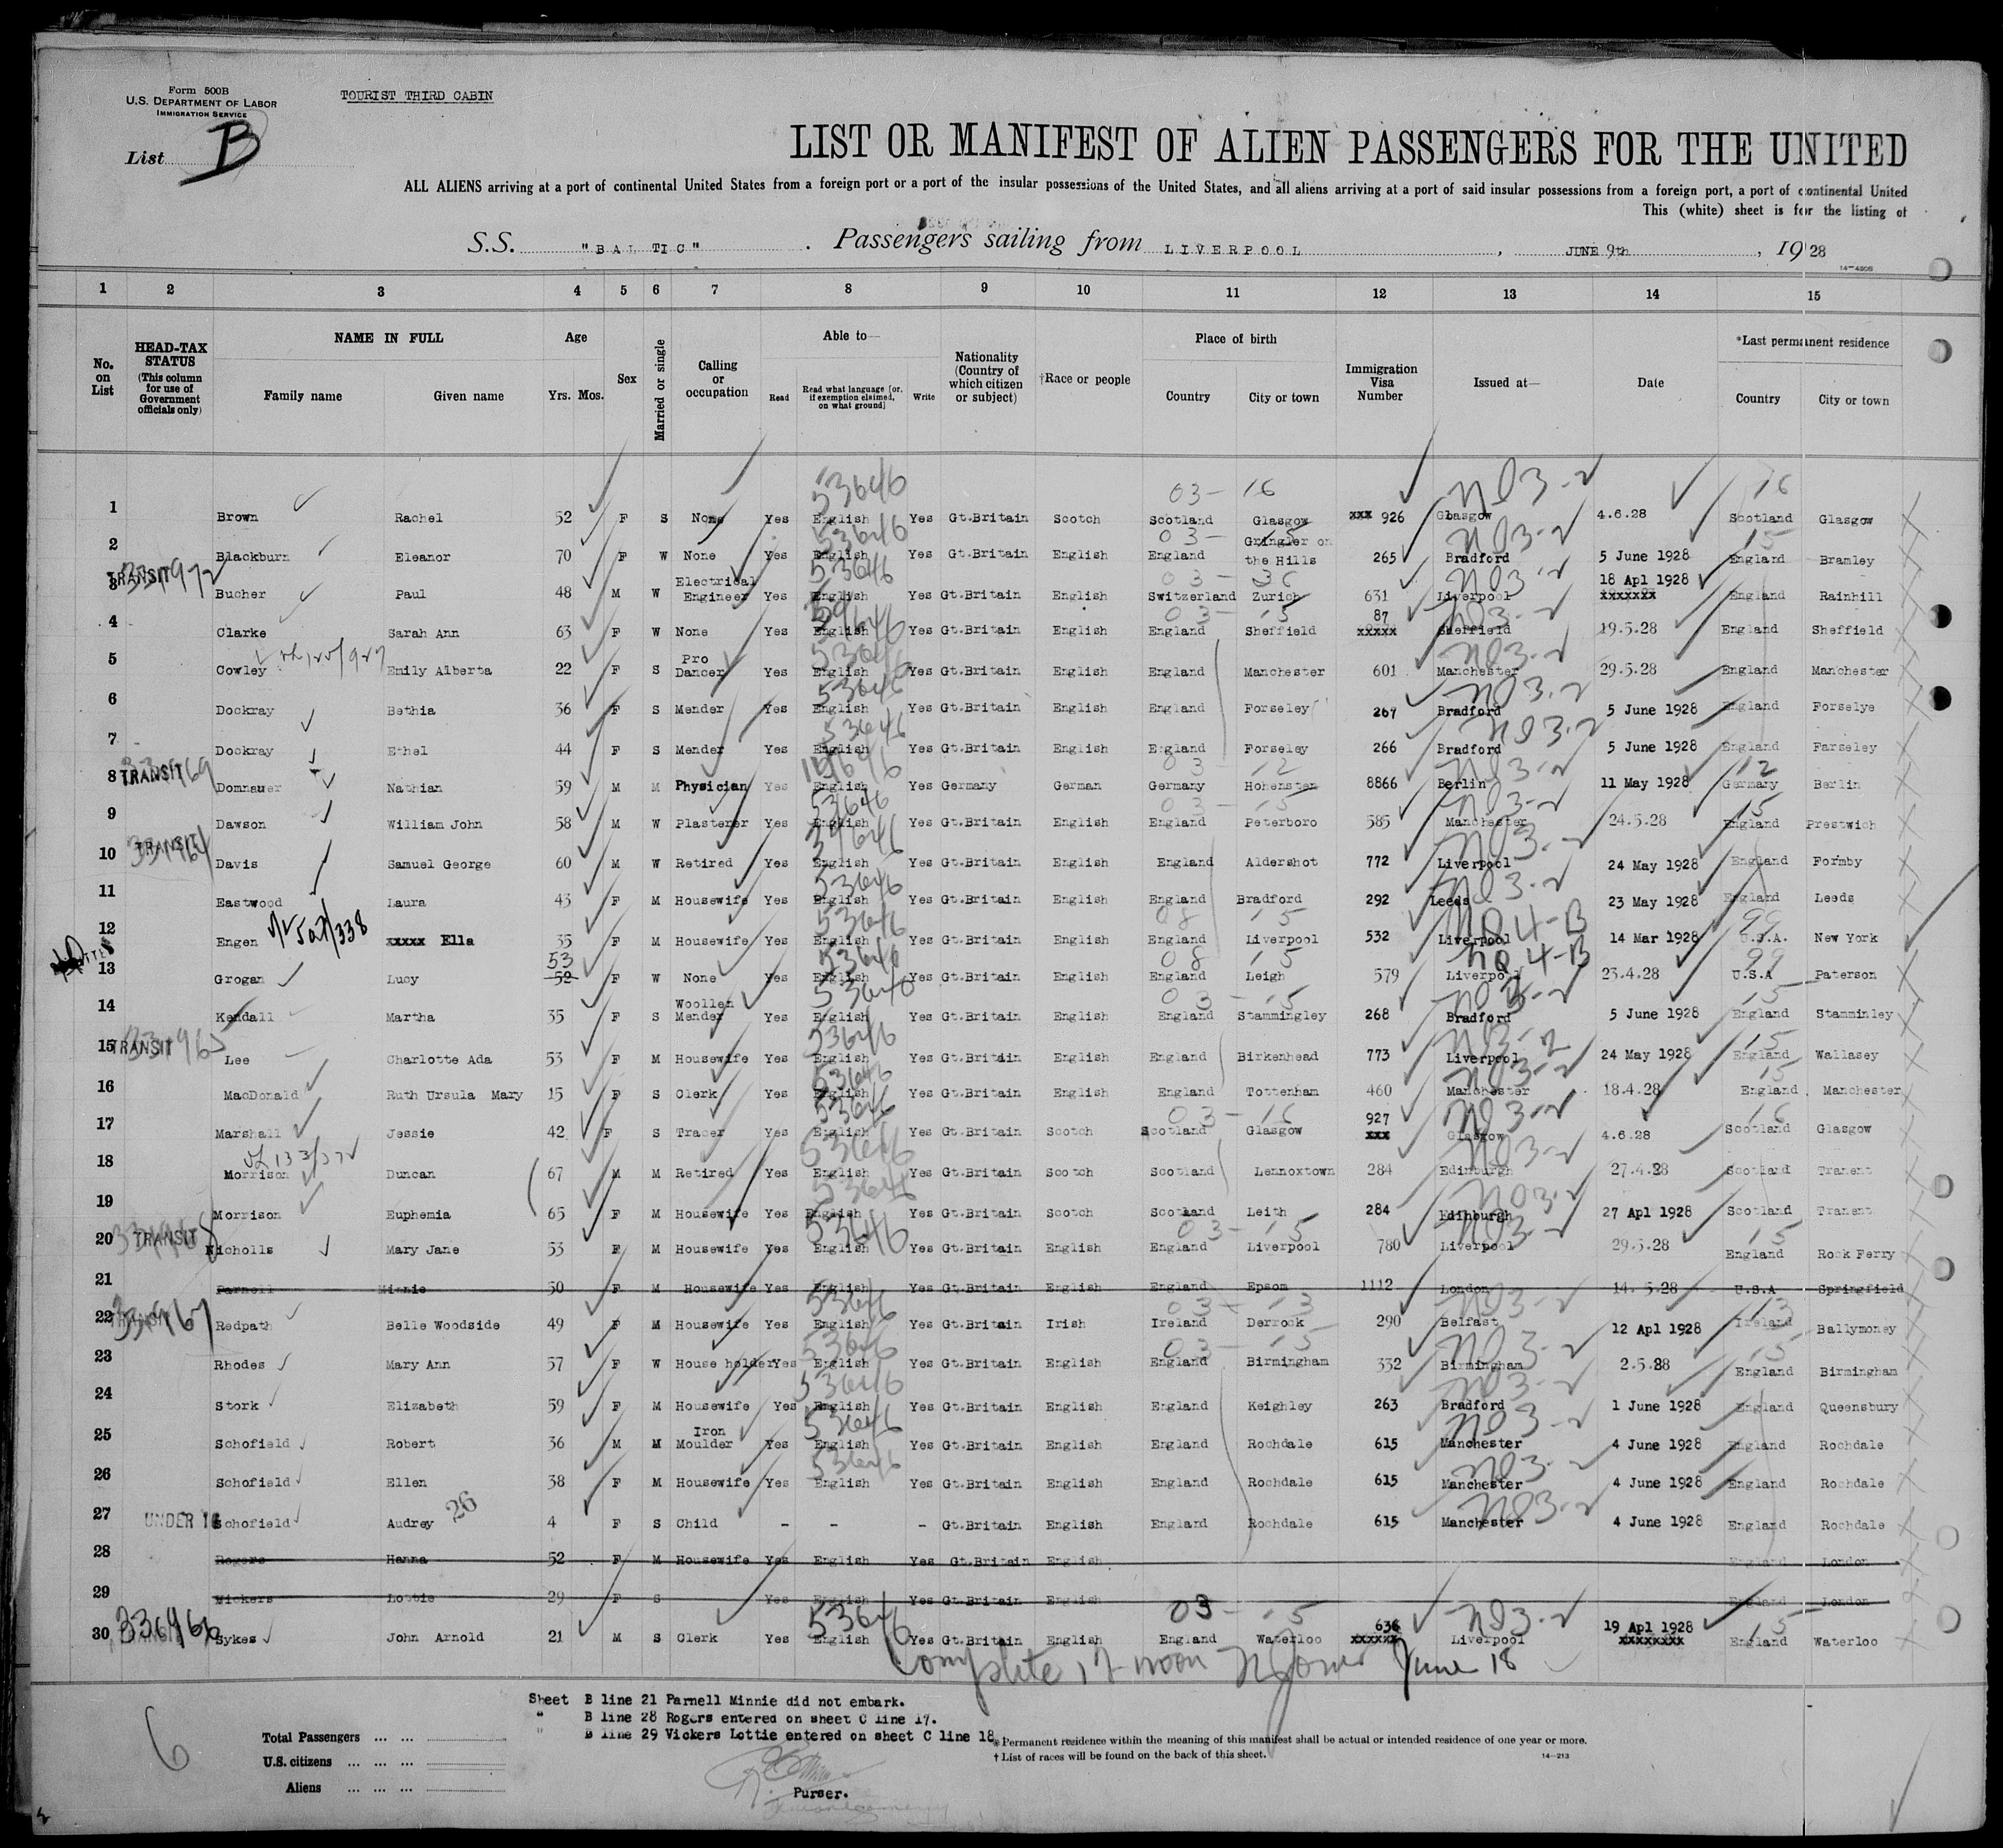 Form 500B
U.S. DEPARTMENT OF LABOR
IMMIGRATION SERVICE
TOURIST THIRD CABIN
List B
LIST OR MANIFEST OF ALIEN PASSENGERS FOR THE UNITED
ALL ALIENS arriving at a port of continental United States from a foreign port or a port of the insular possessions of the United States, and all aliens arriving at a port of said insular possessions from a foreign port, a port of continental United
This (white) sheet is for the listing of
S.S. "BALTIC" . Passengers sailing from LIVERPOOL , JUNE 9th , 1928
14-4208
1 2 3 4 5 6 7 8 9 10 11 12 13 14 15
No. on List HEAD-TAX STATUS (This column for use of Government officials only) NAME IN FULL Family name Given name Age Yrs. Mos. Sex Married or single Calling or occupation Able to— Read Read what language [or, if exemption claimed, on what ground] Write Nationality (Country of which citizen or subject) †Race or people Place of birth Country City or town Immigration Visa Number Issued at— Date *Last permanent residence Country City or town
1 Brown Rachel 52 F S None Yes English Yes Gt.Britain Scotch Scotland Glasgow xxx 926 Glasgow 4.6.28 Scotland Glasgow
2 Blackburn Eleanor 70 F W None Yes English Yes Gt.Britain English England Gringler on the Hills 265 Bradford 5 June 1928 England Bramley
3 TRANSIT Bucher Paul 48 M W Electrical Engineer Yes English Yes Gt.Britain English Switzerland Zurich 631 Liverpool 18 Apl 1928 xxxxxxx England Rainhill
4 Clarke Sarah Ann 63 F W None Yes English Yes Gt.Britain English England Sheffield 87 xxxxx Sheffield 19.5.28 England Sheffield
5 Cowley Emily Alberta 22 F S Pro Dancer Yes English Yes Gt.Britain English England Manchester 601 Manchester 29.5.28 England Manchester
6 Dockray Bethia 36 F S Mender Yes English Yes Gt.Britain English England Forseley 267 Bradford 5 June 1928 England Forselye
7 Dockray Ethel 44 F S Mender Yes English Yes Gt.Britain English England Forseley 266 Bradford 5 June 1928 England Farseley
8 TRANSIT Domnauer Nathian 59 M M Physician Yes English Yes Germany German Germany Hohensten 8866 Berlin 11 May 1928 Germany Berlin
9 Dawson William John 58 M W Plasterer Yes English Yes Gt.Britain English England Peterboro 585 Manchester 24.5.28 England Prestwich
10 TRANSIT Davis Samuel George 60 M W Retired Yes English Yes Gt.Britain English England Aldershot 772 Liverpool 24 May 1928 England Formby
11 Eastwood Laura 43 F M Housewife Yes English Yes Gt.Britain English England Bradford 292 Leeds 23 May 1928 England Leeds
12 Engen xxxxx Ella 35 F M Housewife Yes English Yes Gt.Britain English England Liverpool 532 Liverpool 14 Mar 1928 U.S.A. New York
13 Grogan Lucy 53 52 F W None Yes English Yes Gt.Britain English England Leigh 579 Liverpool 23.4.28 U.S.A Paterson
14 Kendall Martha 35 F S Woollen Mender Yes English Yes Gt.Britain English England Stammingley 268 Bradford 5 June 1928 England Stamminley
15 TRANSIT Lee Charlotte Ada 53 F M Housewife Yes English Yes Gt.Britain English England Birkenhead 773 Liverpool 24 May 1928 England Wallasey
16 MacDonald Ruth Ursula Mary 15 F S Clerk Yes English Yes Gt.Britain English England Tottenham 460 Manchester 18.4.28 England Manchester
17 Marshall Jessie 42 F S Tracer Yes English Yes Gt.Britain Scotch Scotland Glasgow 927 xxx Glasgow 4.6.28 Scotland Glasgow
18 Morrison Duncan 67 M M Retired Yes English Yes Gt.Britain Scotch Scotland Lennoxtown 284 Edinburgh 27.4.28 Scotland Tranent
19 Morrison Euphemia 65 F M Housewife Yes English Yes Gt.Britain Scotch Scotland Leith 284 Edinburgh 27 Apl 1928 Scotland Tranent
20 TRANSIT Nicholls Mary Jane 53 F M Housewife Yes English Yes Gt.Britain English England Liverpool 780 Liverpool 29.5.28 England Rock Ferry
21 Parnell Minnie 50 F M Housewife Yes English Yes Gt.Britain English England Epsom 1112 London 14.5.28 U.S.A Springfield
22 Redpath Belle Woodside 49 F M Housewife Yes English Yes Gt.Britain Irish Ireland Derrock 290 Belfast 12 Apl 1928 Ireland Ballymoney
23 Rhodes Mary Ann 57 F W House holder Yes English Yes Gt.Britain English England Birmingham 332 Birmingham 2.5.28 England Birmingham
24 Stork Elizabeth 59 F M Housewife Yes English Yes Gt.Britain English England Keighley 263 Bradford 1 June 1928 England Queensbury
25 Schofield Robert 36 M M Iron Moulder Yes English Yes Gt.Britain English England Rochdale 615 Manchester 4 June 1928 England Rochdale
26 Schofield Ellen 38 F M Housewife Yes English Yes Gt.Britain English England Rochdale 615 Manchester 4 June 1928 England Rochdale
27 UNDER 16 Schofield Audrey 26 4 F S Child - - - Gt.Britain English England Rochdale 615 Manchester 4 June 1928 England Rochdale
28 Rogers Hanna 52 F M Housewife Yes English Yes Gt.Britain English England London
29 Vickers Lottie 29 F S Yes English Yes Gt.Britain English England London
30 336966 Sykes John Arnold 21 M S Clerk Yes English Yes Gt.Britain English England Waterloo 636 xxxxxx Liverpool 19 Apl 1928 xxxxxxxx England Waterloo
Complete 12 noon June 18
Sheet B line 21 Parnell Minnie did not embark.
" B line 28 Rogers entered on sheet C line 17.
" B line 29 Vickers Lottie entered on sheet C line 18
6
Total Passengers ... ...
U.S. citizens ... ... ...
Aliens ... ... ...
Purser.
* Permanent residence within the meaning of this manifest shall be actual or intended residence of one year or more.
† List of races will be found on the back of this sheet.
14-213